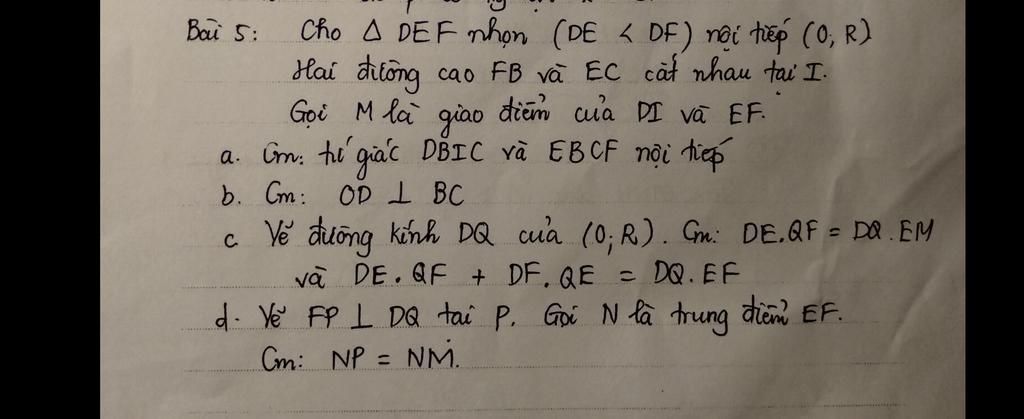 Bài 5: Cho Δ DEF nhọn (DE < DF) nội tiếp (O, R)
Hai đường cao FB và EC cắt nhau tại I.
Gọi M là giao điểm của DI và EF.
a. Cm: tứ giác DBIC và EBCF nội tiếp
b. Cm: OD ⊥ BC
c Vẽ đường kính DQ của (O; R). Cm: DE.QF = DQ.EM
và DE.QF + DF.QE = DQ.EF
d. Vẽ FP ⊥ DQ tại P. Gọi N là trung điểm EF.
Cm: NP = NM.